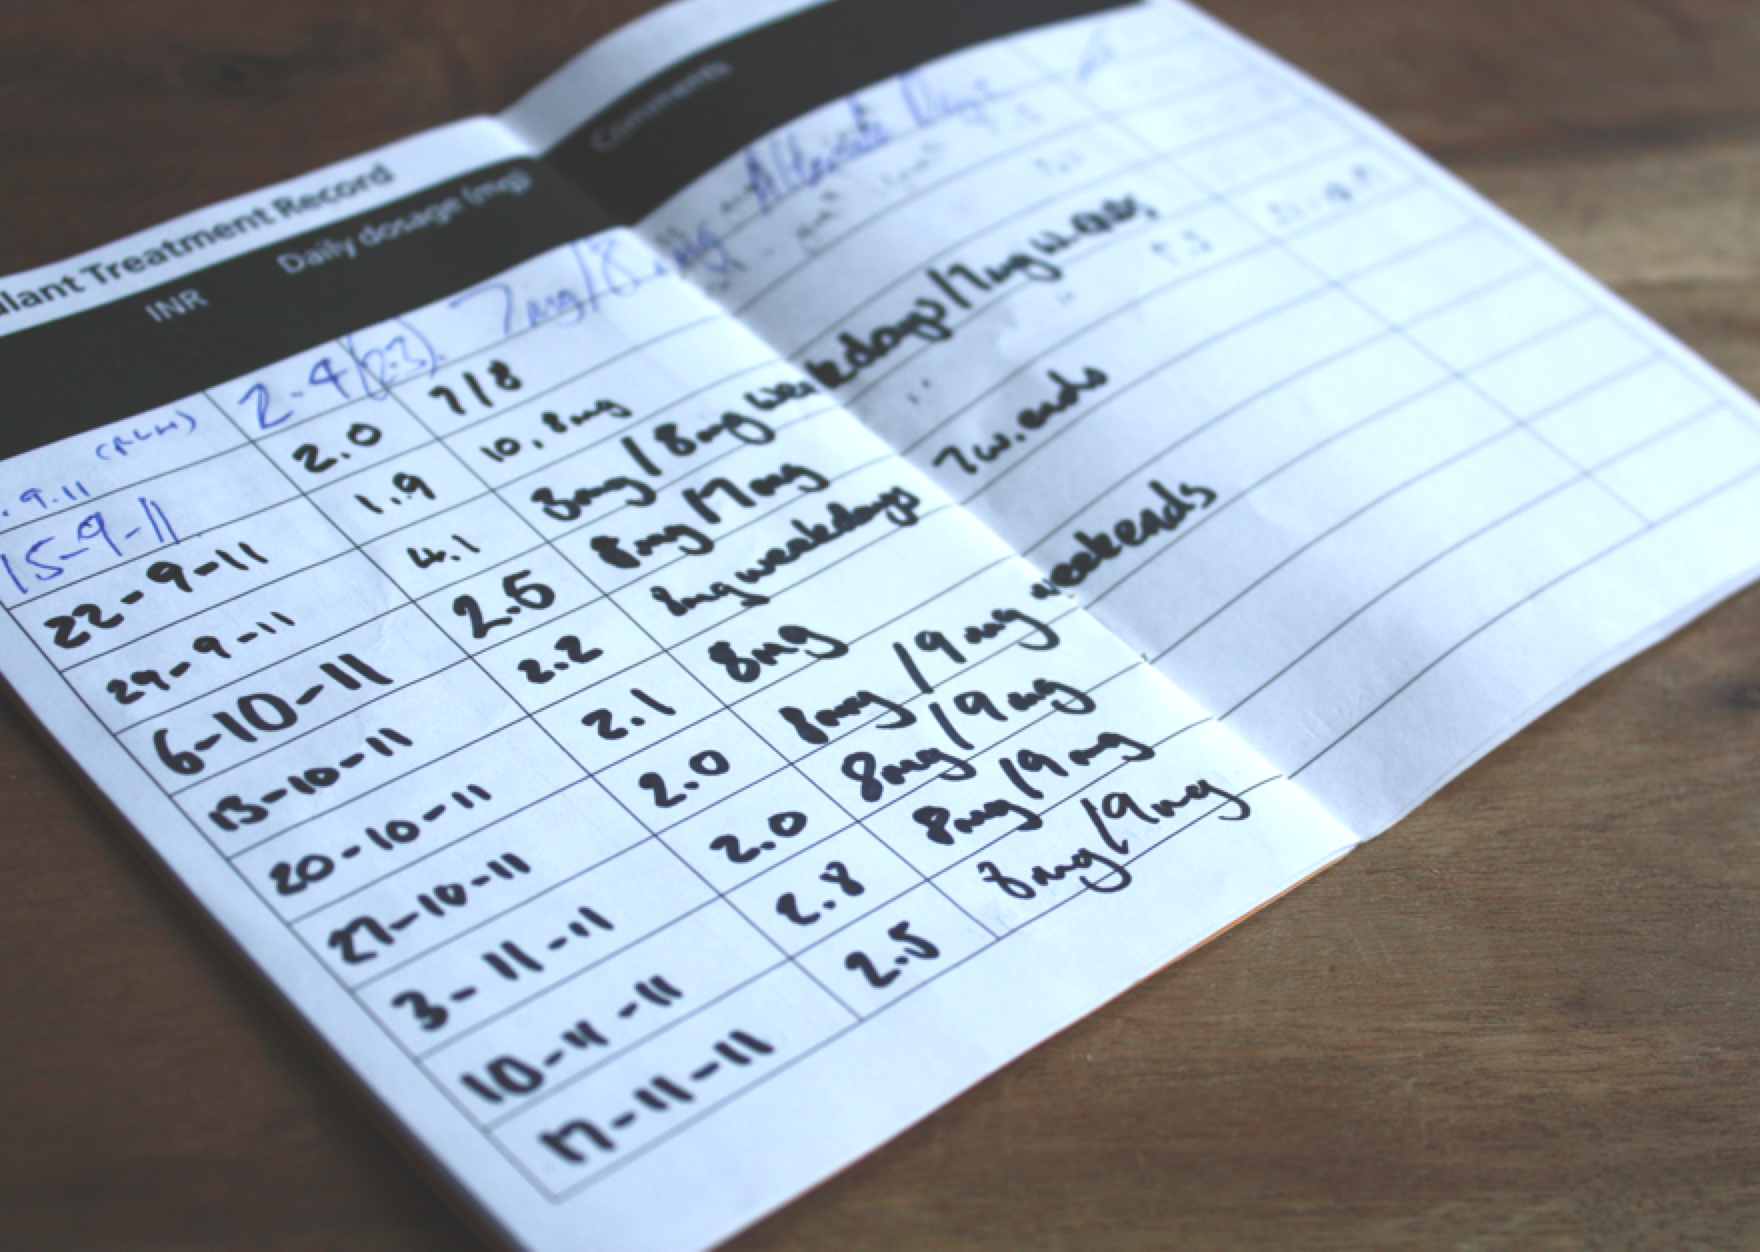 ulant Treatment Record
INR Daily dosage (mg) Comments
.9.11 (RLH) 2.4 (2.3). 7mg/8mg - Alternate Days
15-9-11 2.0 7/8
22-9-11 1.9 10, 8mg
29-9-11 4.1 8mg/8mg weekdays/7mg w.ends
6-10-11 2.6 8mg/7mg "
13-10-11 2.2 8mg weekdays 7 w.ends
20-10-11 2.1 8mg
27-10-11 2.0 8mg/9mg weekends
3-11-11 2.0 8mg/9mg
10-11-11 2.8 8mg/9mg
17-11-11 2.5 8mg/9mg